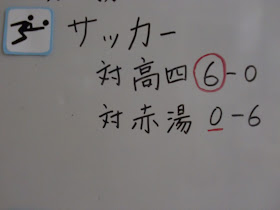 サッカー
対高四 6-0
対赤湯 0-6